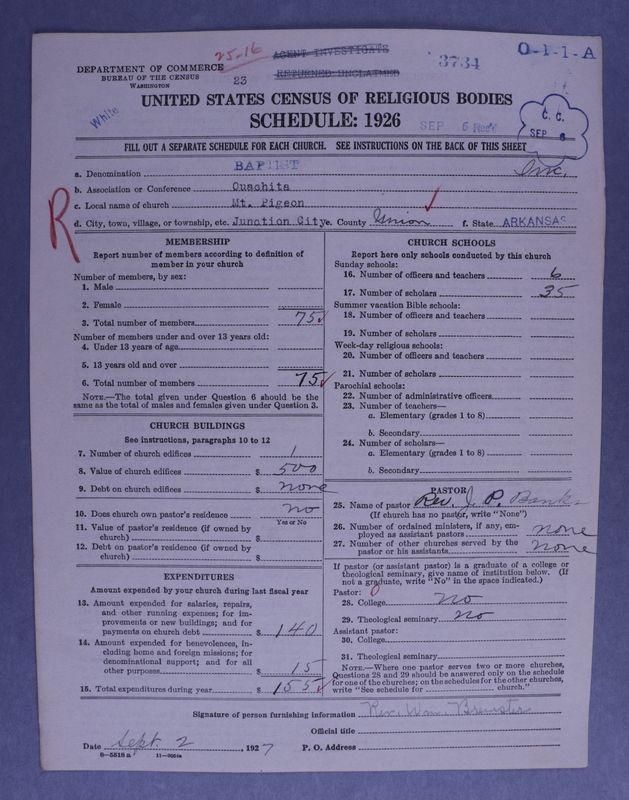 25-16
AGENT INVESTIGATE
RETURNED UNCLAIMED
O-1-1-A
3734
DEPARTMENT OF COMMERCE
BUREAU OF THE CENSUS
WASHINGTON
23
White
UNITED STATES CENSUS OF RELIGIOUS BODIES
SCHEDULE: 1926
SEP 6 Rec'd
C. C.
SEP 8
FILL OUT A SEPARATE SCHEDULE FOR EACH CHURCH. SEE INSTRUCTIONS ON THE BACK OF THIS SHEET
R
a. Denomination BAPTIST
b. Association or Conference Ouachita
c. Local name of church Mt. Pigeon
d. City, town, village, or township, etc. Junction City e. County Union f. State ARKANSAS
MEMBERSHIP
Report number of members according to definition of
member in your church
Number of members, by sex:
1. Male
2. Female
3. Total number of members 75
Number of members under and over 13 years old:
4. Under 13 years of age
5. 13 years old and over
6. Total number of members 75
NOTE.—The total given under Question 6 should be the
same as the total of males and females given under Question 3.
CHURCH BUILDINGS
See instructions, paragraphs 10 to 12
7. Number of church edifices 1
8. Value of church edifices $ 500
9. Debt on church edifices $ none
10. Does church own pastor's residence? no
Yes or No
11. Value of pastor's residence (if owned by
church) $
12. Debt on pastor's residence (if owned by
church) $
EXPENDITURES
Amount expended by your church during last fiscal year
13. Amount expended for salaries, repairs,
and other running expenses; for im-
provements or new buildings; and for
payments on church debt $ 140
14. Amount expended for benevolences, in-
cluding home and foreign missions; for
denominational support; and for all
other purposes $ 15
15. Total expenditures during year $ 155
CHURCH SCHOOLS
Report here only schools conducted by this church
Sunday schools:
16. Number of officers and teachers 6
17. Number of scholars 35
Summer vacation Bible schools:
18. Number of officers and teachers
19. Number of scholars
Week-day religious schools:
20. Number of officers and teachers
21. Number of scholars
Parochial schools:
22. Number of administrative officers
23. Number of teachers—
a. Elementary (grades 1 to 8)
b. Secondary
24. Number of scholars—
a. Elementary (grades 1 to 8)
b. Secondary
PASTOR
25. Name of pastor Rev. J. P. Banks
(If church has no pastor, write "None")
26. Number of ordained ministers, if any, em-
ployed as assistant pastors none
27. Number of other churches served by the
pastor or his assistants none
If pastor (or assistant pastor) is a graduate of a college or
theological seminary, give name of institution below. (If
not a graduate, write "No" in the space indicated.)
Pastor: 0
28. College no
29. Theological seminary no
Assistant pastor:
30. College
31. Theological seminary
NOTE.—Where one pastor serves two or more churches,
Questions 28 and 29 should be answered only on the schedule
for one of the churches; on the schedules for the other churches,
write "See schedule for church."
Signature of person furnishing information Rev. Wm. Brewster
Official title
Date Sept. 2, 1927 P. O. Address